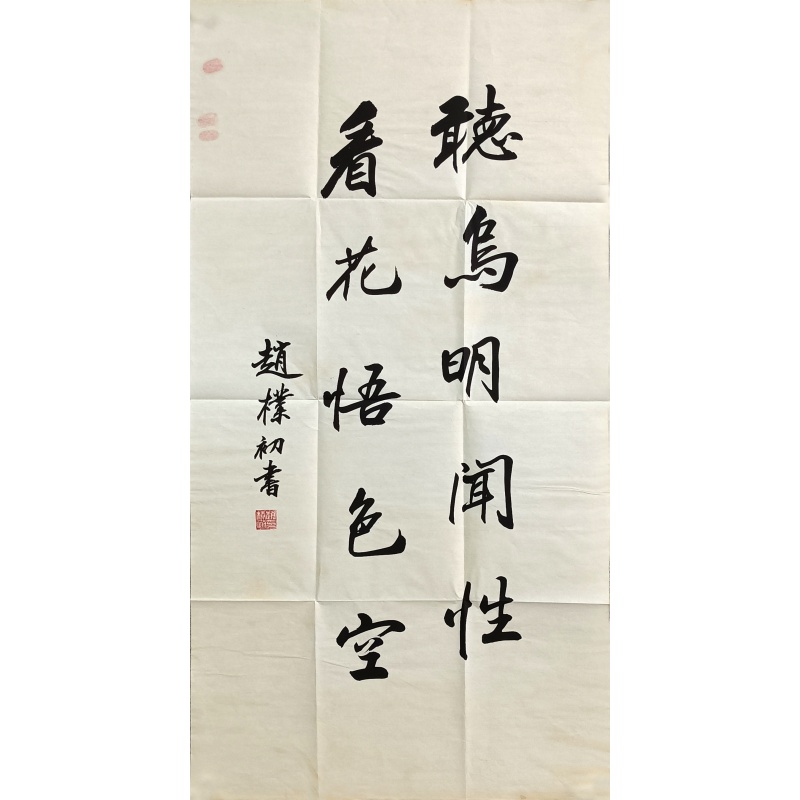 聽鳥明闻性
看花悟色空
趙樸初書